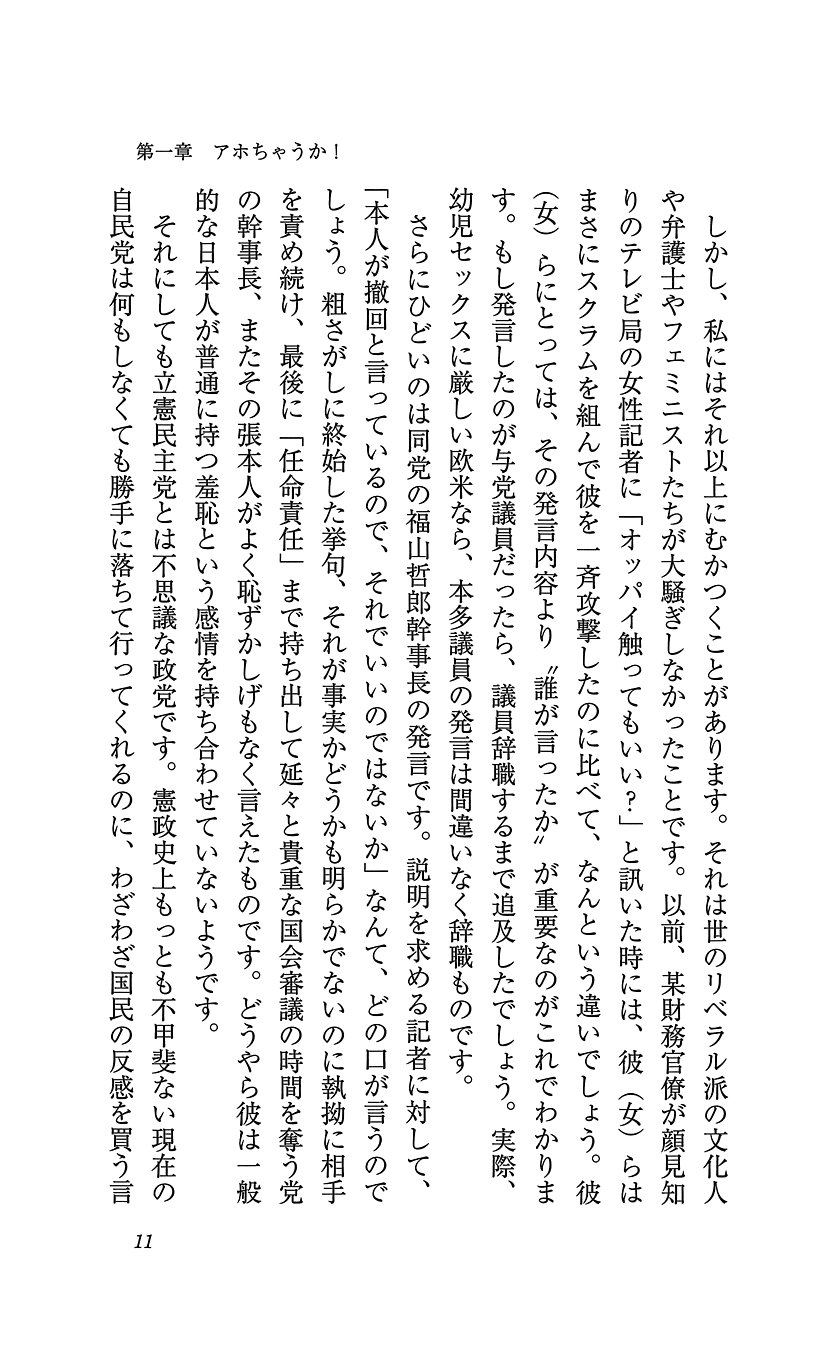 第一章　アホちゃうか！
しかし、私にはそれ以上にむかつくことがあります。それは世のリベラル派の文化人
や弁護士やフェミニストたちが大騒ぎしなかったことです。以前、某財務官僚が顔見知
りのテレビ局の女性記者に「オッパイ触ってもいい？」と訊いた時には、彼（女）らは
まさにスクラムを組んで彼を一斉攻撃したのに比べて、なんという違いでしょう。彼
（女）らにとっては、その発言内容より〝誰が言ったか〟が重要なのがこれでわかりま
す。もし発言したのが与党議員だったら、議員辞職するまで追及したでしょう。実際、
幼児セックスに厳しい欧米なら、本多議員の発言は間違いなく辞職ものです。
さらにひどいのは同党の福山哲郎幹事長の発言です。説明を求める記者に対して、
「本人が撤回と言っているので、それでいいのではないか」なんて、どの口が言うので
しょう。粗さがしに終始した挙句、それが事実かどうかも明らかでないのに執拗に相手
を責め続け、最後に「任命責任」まで持ち出して延々と貴重な国会審議の時間を奪う党
の幹事長、またその張本人がよく恥ずかしげもなく言えたものです。どうやら彼は一般
的な日本人が普通に持つ羞恥という感情を持ち合わせていないようです。
それにしても立憲民主党とは不思議な政党です。憲政史上もっとも不甲斐ない現在の
自民党は何もしなくても勝手に落ちて行ってくれるのに、わざわざ国民の反感を買う言
11